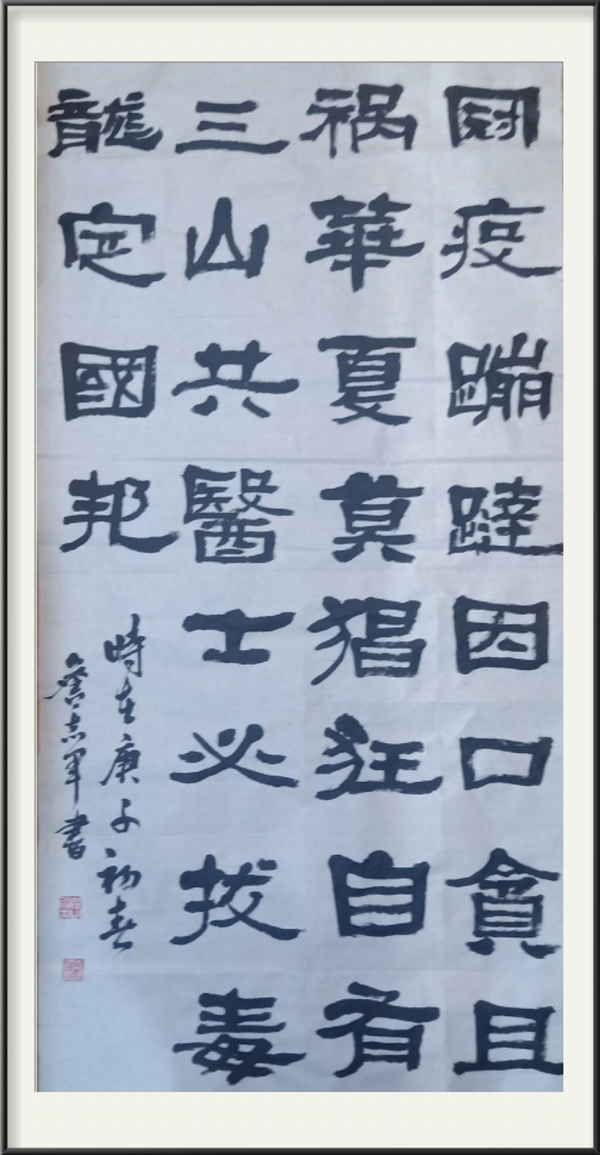 鬪疫蹦躂因口貪且
祸華夏莫猖狂自有
三山共醫士必拔毒
龍定國邦
時在庚子初春
詹志军書